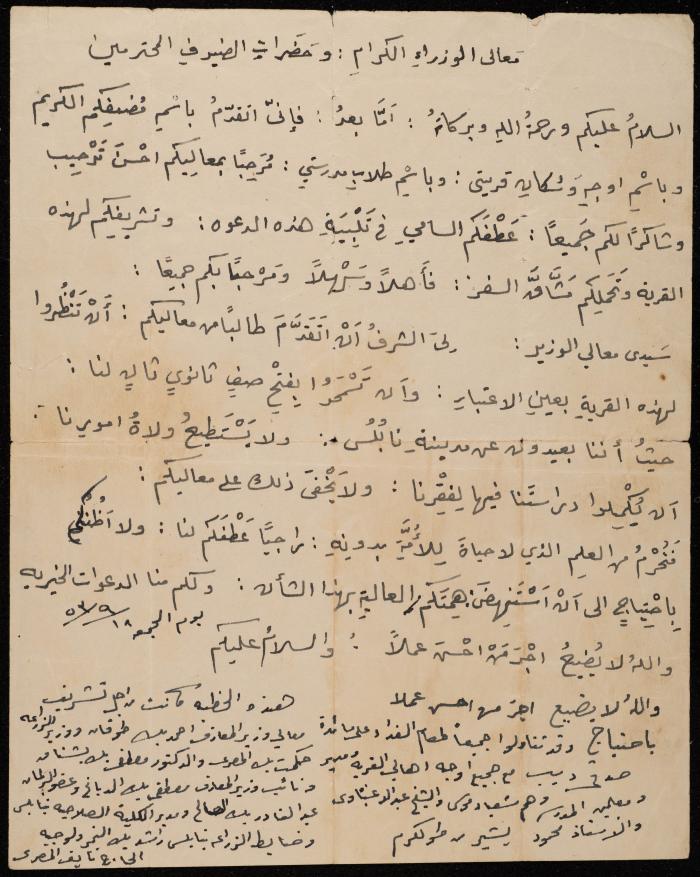 معالي الوزراءِ الكرامِ : وحَضَراتِ الضيوفِ المحترمين
السلامُ عليكم ورحمةُ اللهِ وبركاتهُ : أمَّا بعدُ : فإنّي اتقدّمُ باسْمِ مُضيفِكُم الكريم
وباسْمِ اوجهِ وَسُكانِ قريتي : وباسْمِ طلابِ مدرستي : مُرَحِبًا بمعاليكم احْسَنَ تَرْحيب
وشاكرًا لكم جَميعًا : عَطْفَكُم السامي في تَلْبِيَةِ هذه الدعوه : وتشريفِكُم لهذه
القرية وتَحَمُلِكم مَشَاقَّ السفر : فأَهلاً وسَهْلاً ومَرْحبًا بكم جميعًا :
سَيدى معالي الوزير : لِىَ الشرفُ أنْ اتَقَدَّمَ طالبًا من معاليكم : أَنْ تَنْظُروا
لهذه القريةِ بعينِ الاعتبارِ : وأن تَسْمَحُوا بِفتْحِ صفٍ ثانويٍ ثانٍ لنا :
حيثُ أننا بعيدون عن مدينةِ نابُلُس : ولا يَسْتَطيعُ ولاةُ امورِنا :
أن يُكْمِلوا دراستَنا فيها لِفَقْرِنا : ولا يَخْفَى ذلك على معاليكم :
فَنُحْرَمُ من العِلمِ الذي لا حياةَ لِلأُمَّةِ بدونِهِ : راجيًا عَطْفَكم لنا : ولا أظُنُكُم
بِاحْتِياجٍ الى أنْ أسْتَنهِضَ هِمَتَكُم العاليةِ بهذا الشأن : ولكم منا الدعوات الخيريه
واللهُ لا يُضِيعُ اجْرَ مَنْ احْسَنَ عملاً : والسلامُ عليكم
يوم الجمعه ١٨/٩/٥٣
واللهُ لا يضيع اجرَ من احسن عملا
باحتياجٍ وقد تناولوا جميعاً طعام الغداء على مائدة
صدقي ديب مع جميع اوجه اهالي القرية ومدير
ومعلمين المدرسه وهم سعاده موسى والشيخ عبدالله عبتاوى
والاستاذ محمود بشير من طولكرم
هذه الخطبه كانت من اجل تشريف
معالي وزير المعارف احمد بك طوقان ووزير الزراعه
حكمت بك المصري والدكتور مصطفى بك بشناق
ونائب وزير المعارف مصطفى بك الدباغ وعضو البرلمان
عبدالقادر بك الصالح ومدير الكلية الصلاحيه نابلس
وضابط الزراعه بنابلس راشد بك النمر ولوجيه
الحاج نايف المصري